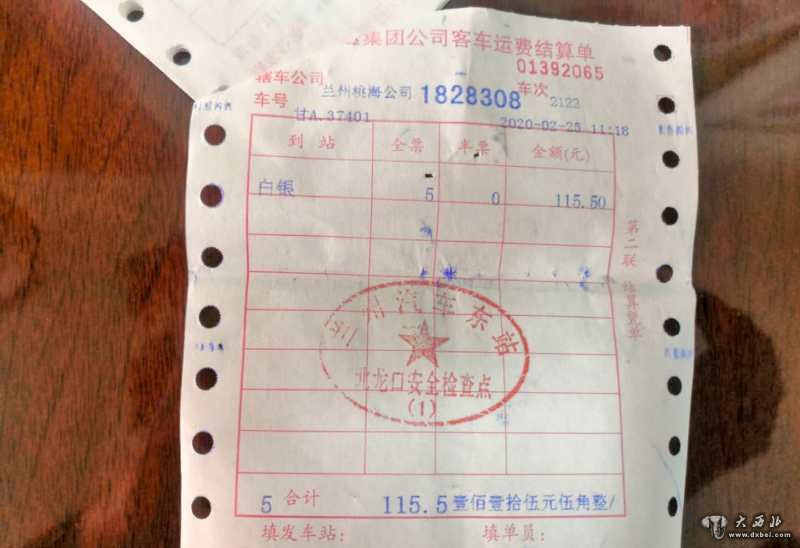 集团公司客车运费结算单
01392065
辖车公司 兰州桃海公司 1828308 车次 2122
车号 甘A.37401 2020-02-25 11:18
到站 全票 半票 金额(元)
白银 5 0 115.50
第二联
兰州汽车东站
北龙口安全检查点
(1)
5 合计 115.5 壹佰壹拾伍元伍角整/
填发车站: 填单员:
大西北
www.dxbei.com